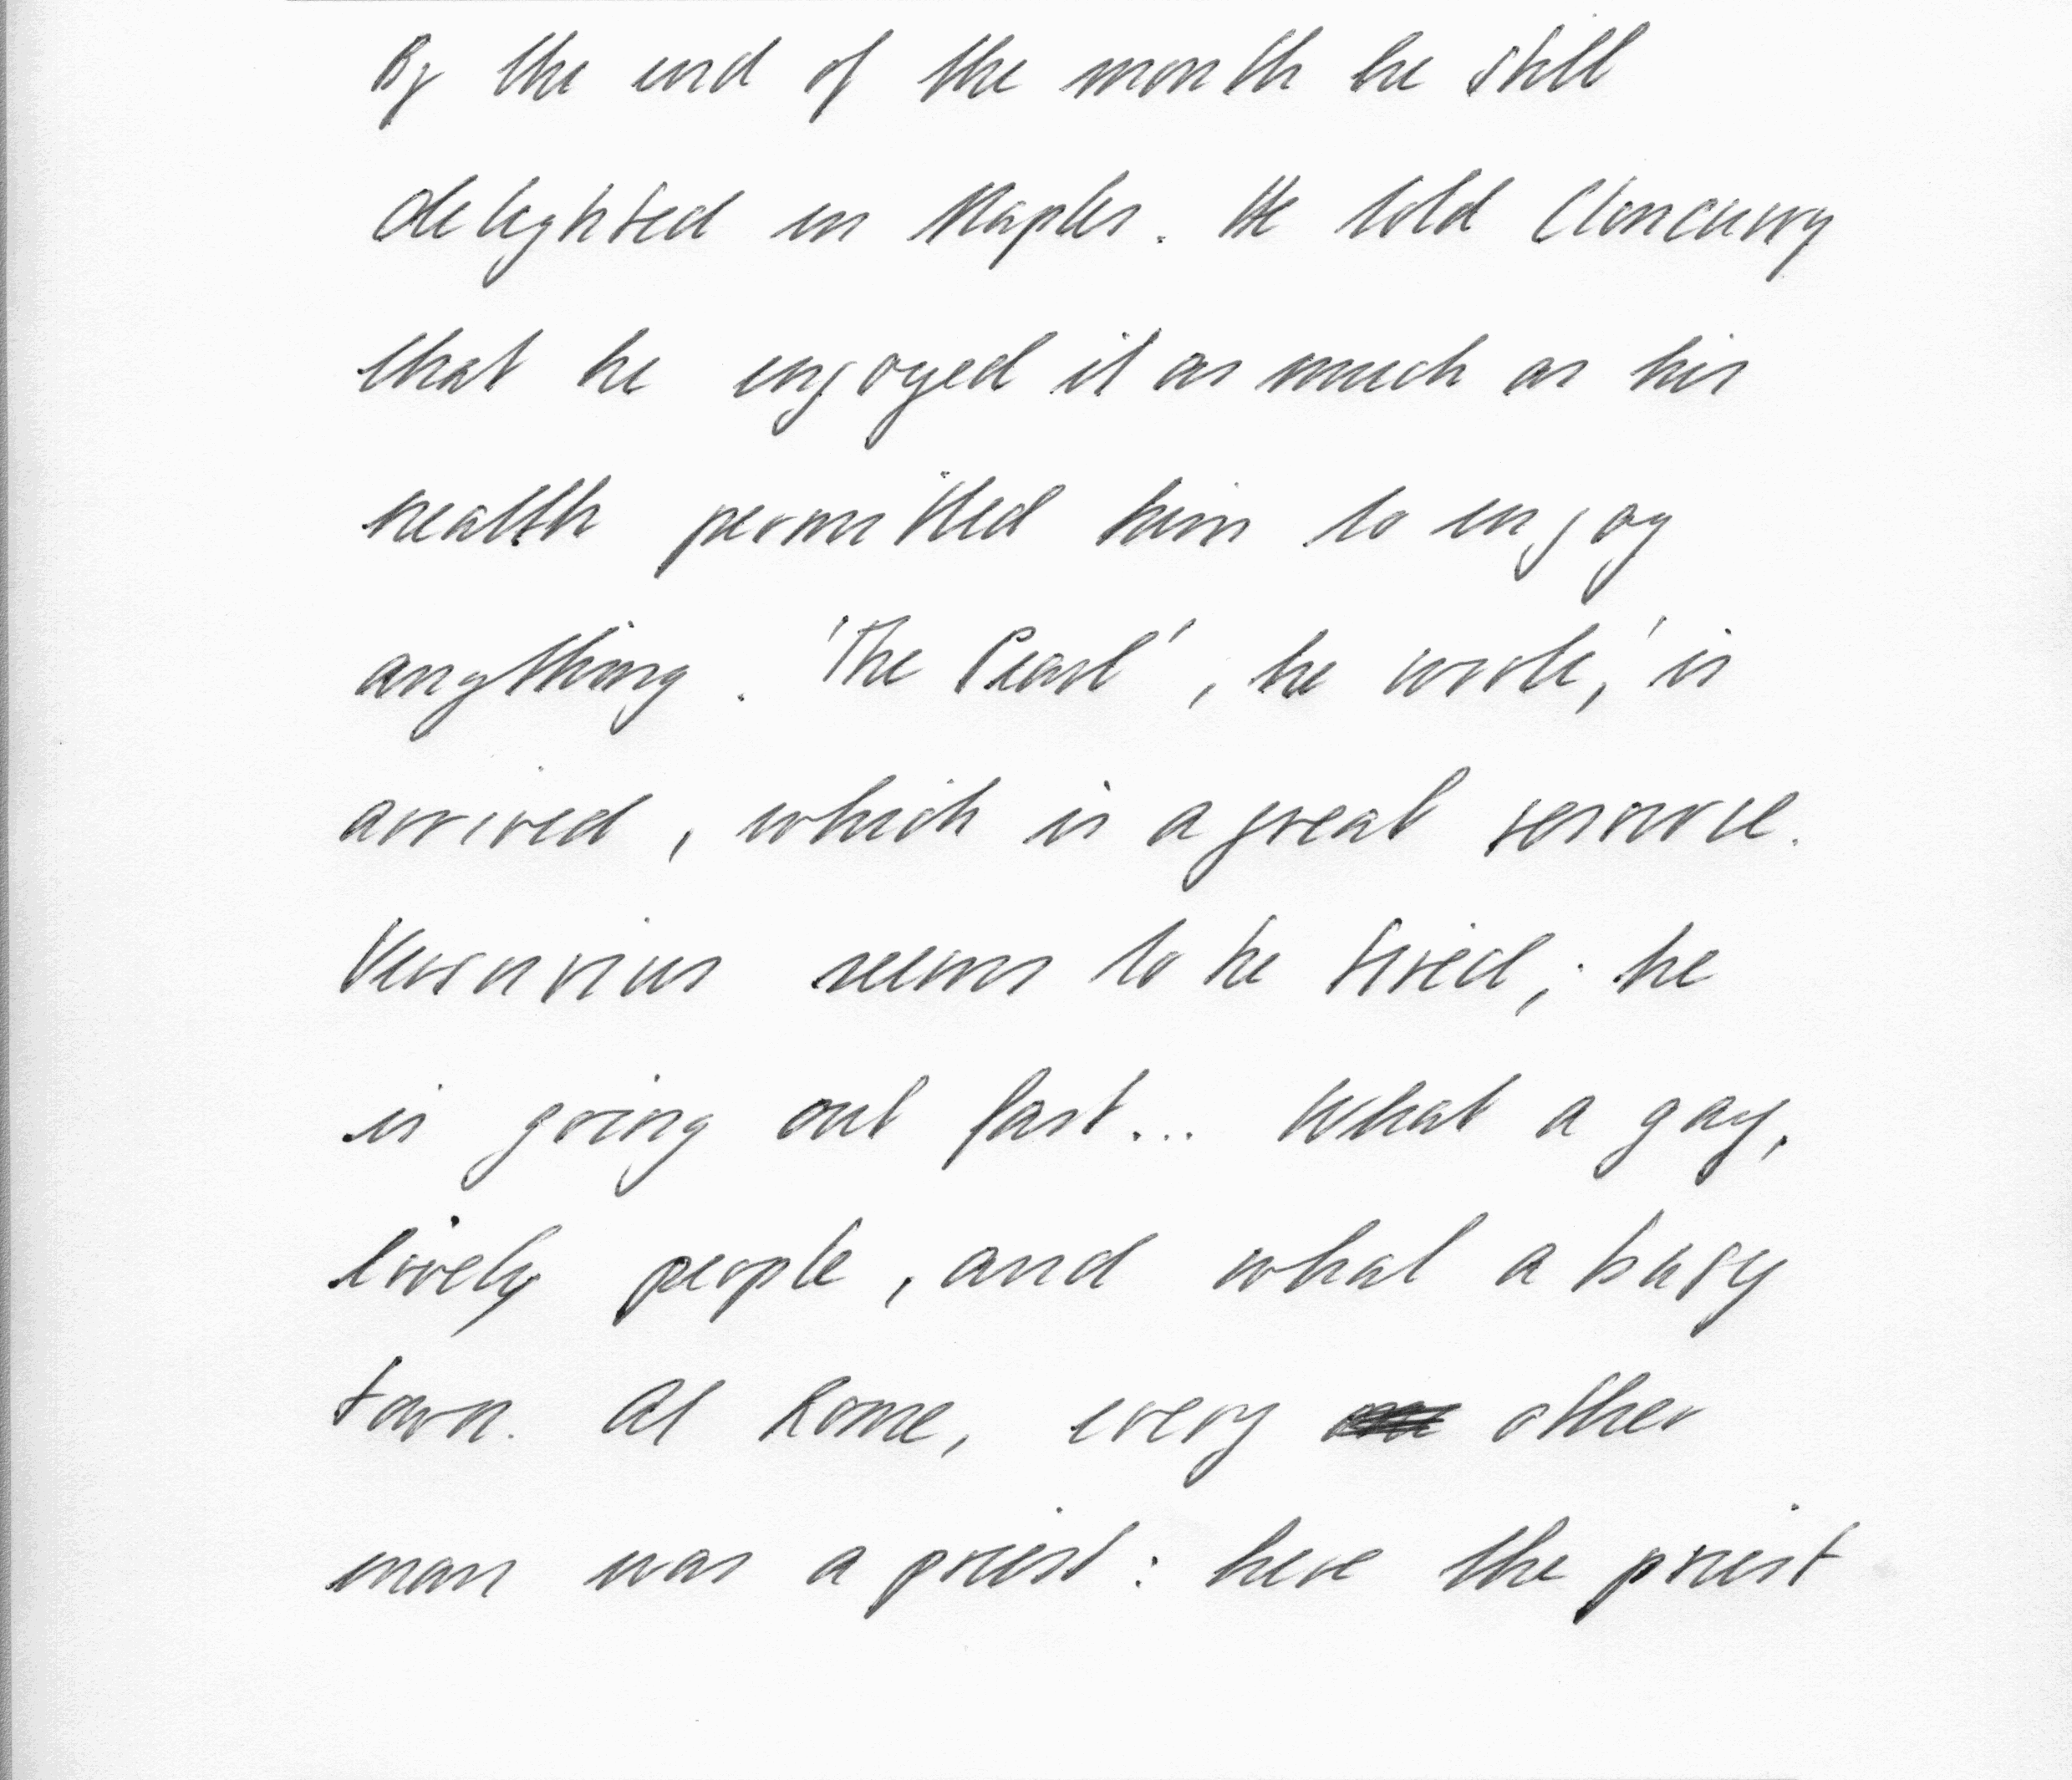 By the end of the month he still
delighted in Naples. He told Cloncurry
that he enjoyed it as much as his
health permitted him to enjoy
anything. 'The Pearl', he wrote, 'is
arrived, which is a great resource.
Vesuvius seems to be tired; he
is going out fast... What a gay,
lively people, and what a busy
town. At Rome, every other
man was a priest: here the priest